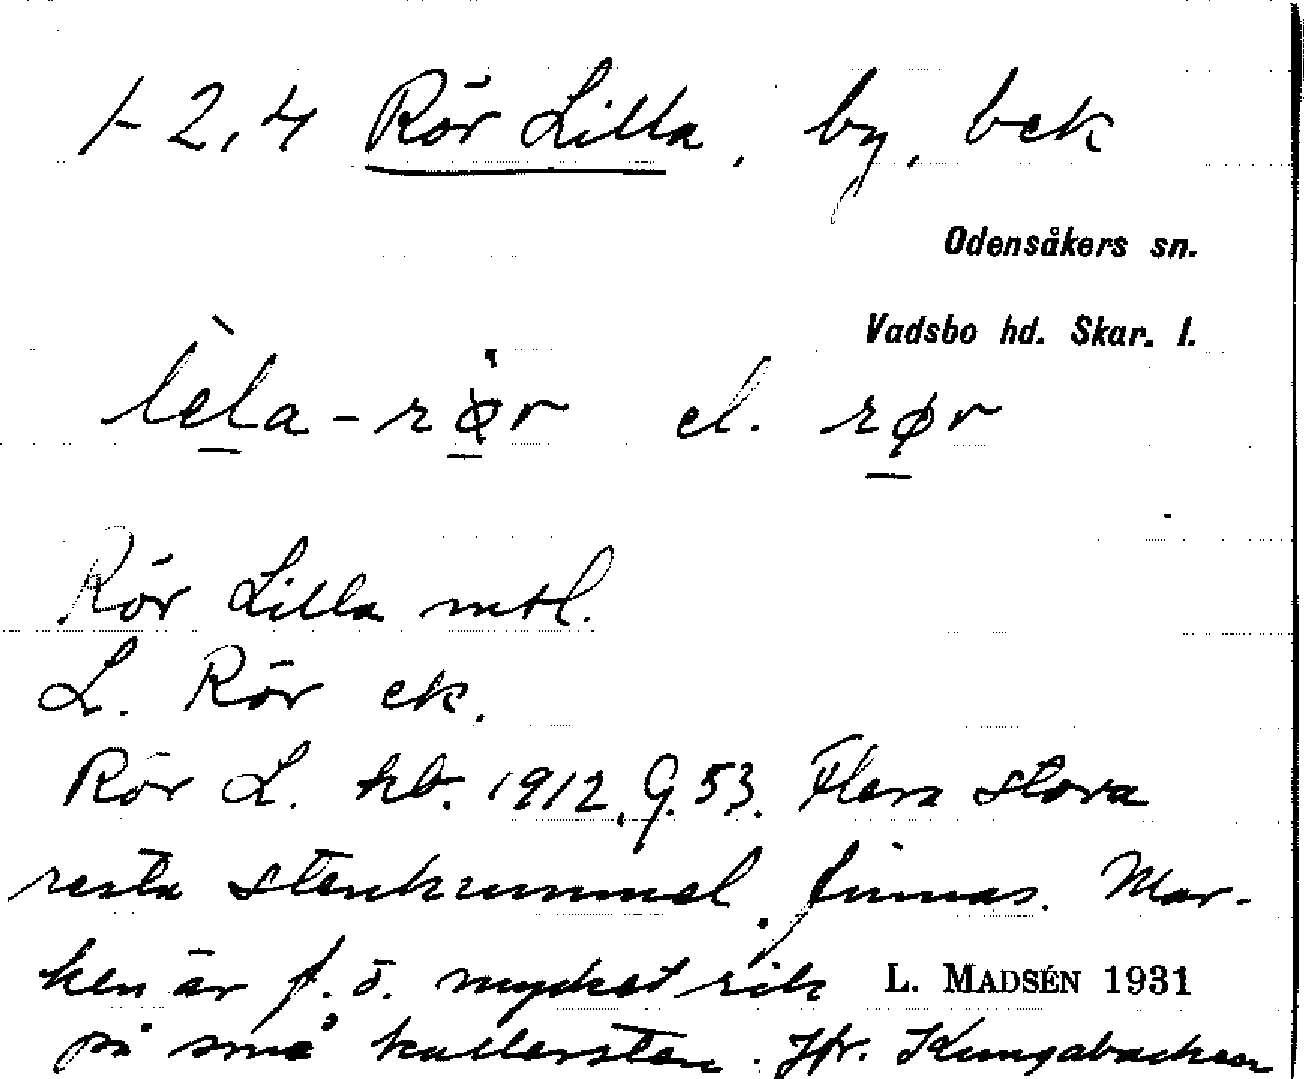 1-2,4 Rör Lilla, by, bek
Odensåkers sn.
Vadsbo hd. Skar. l.
lèla-rør el. rør
Rör Lilla mtl.
L. Rör ek.
Rör L. hb. 1912, G. 53. Flera stora
resta stenkummel finnas. Mar-
ken är f. ö. mycket rik
L. MADSÉN 1931
på små kullersten. Jfr. Kungabacken